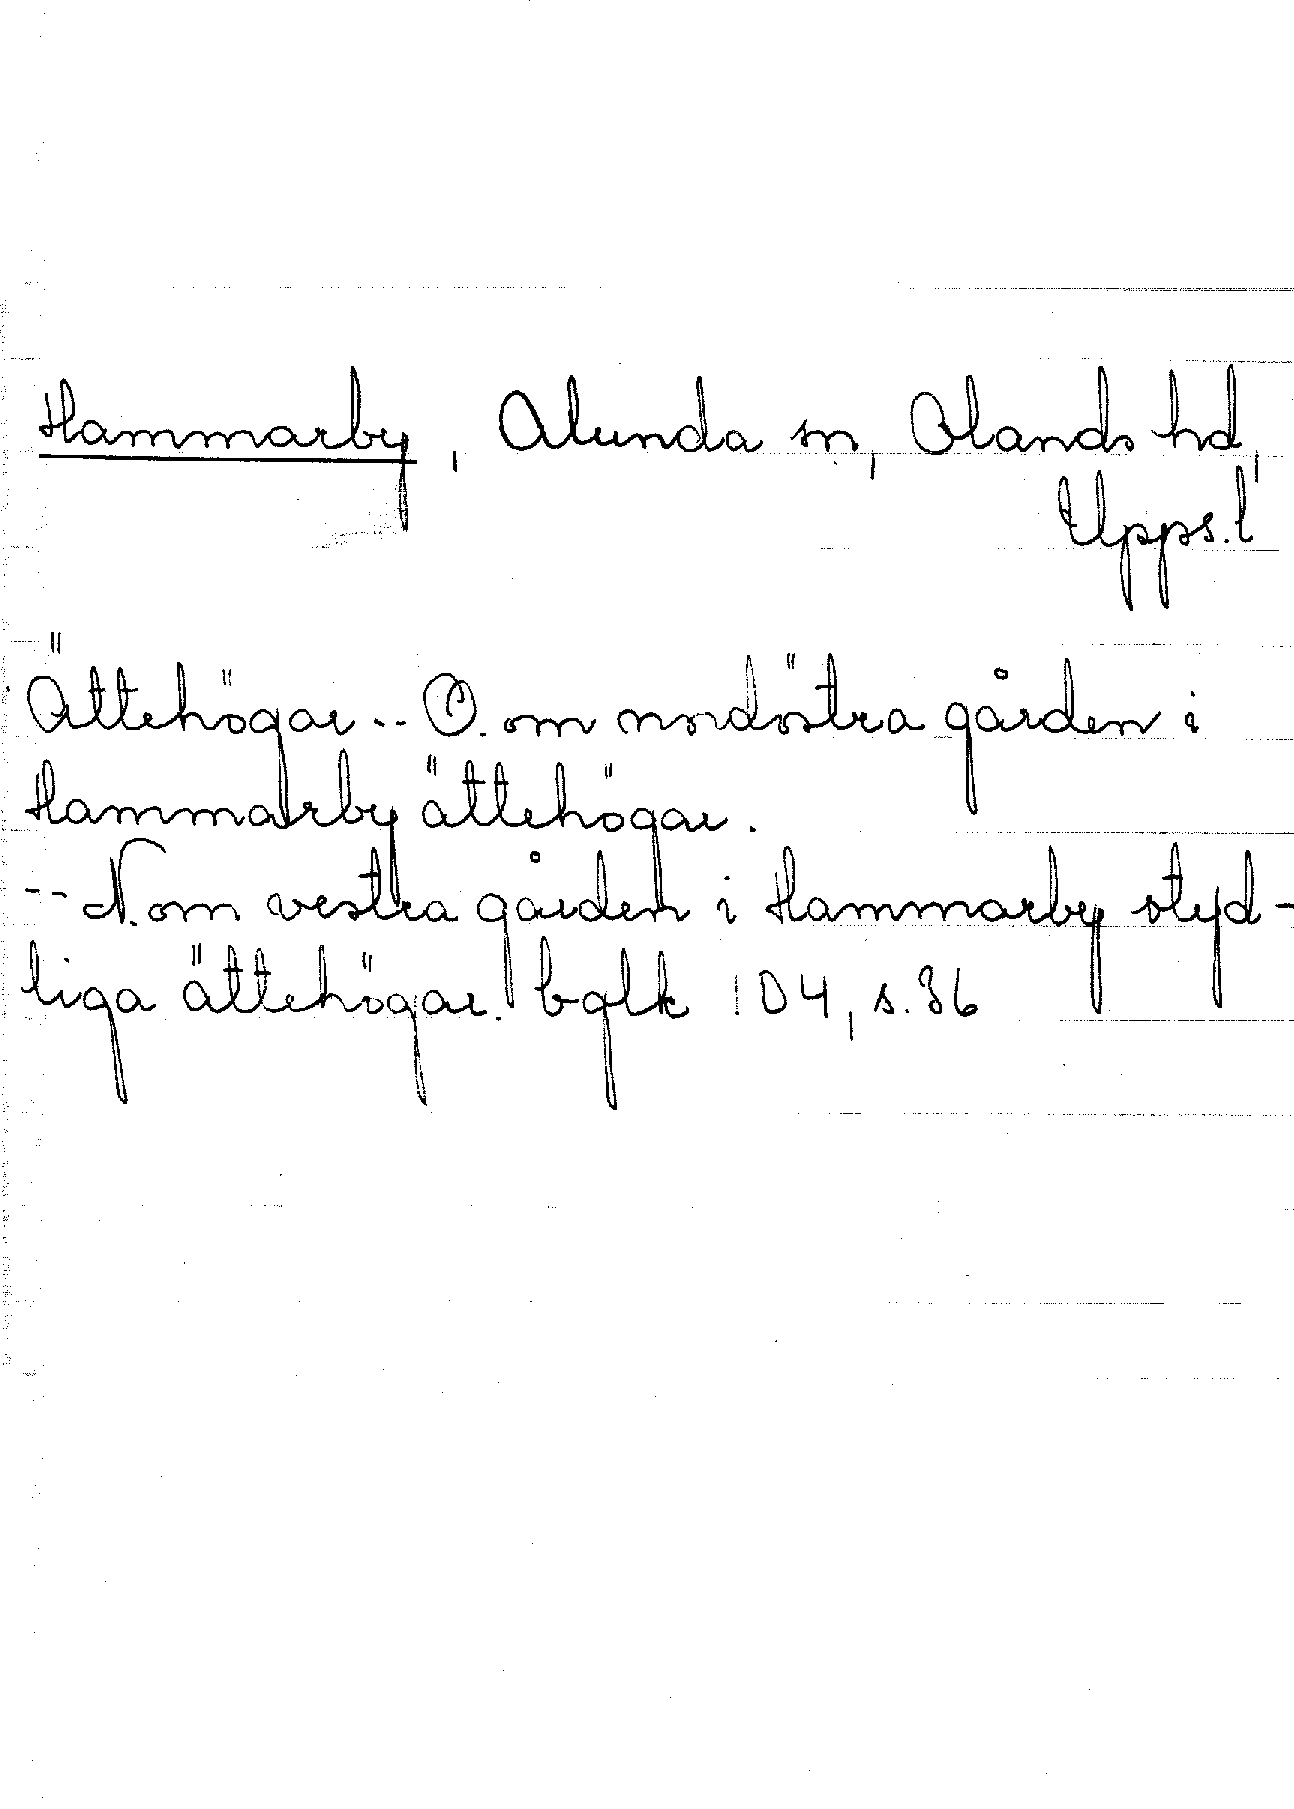 Hammarby, Alunda sn, Olands hd,
Upps. l
Ättehögar -- O. om nordöstra gården i
Hammarby ättehögar.
-- N. om vestra gården i Hammarby otyd-
liga ättehögar. bglk 104, s. 36